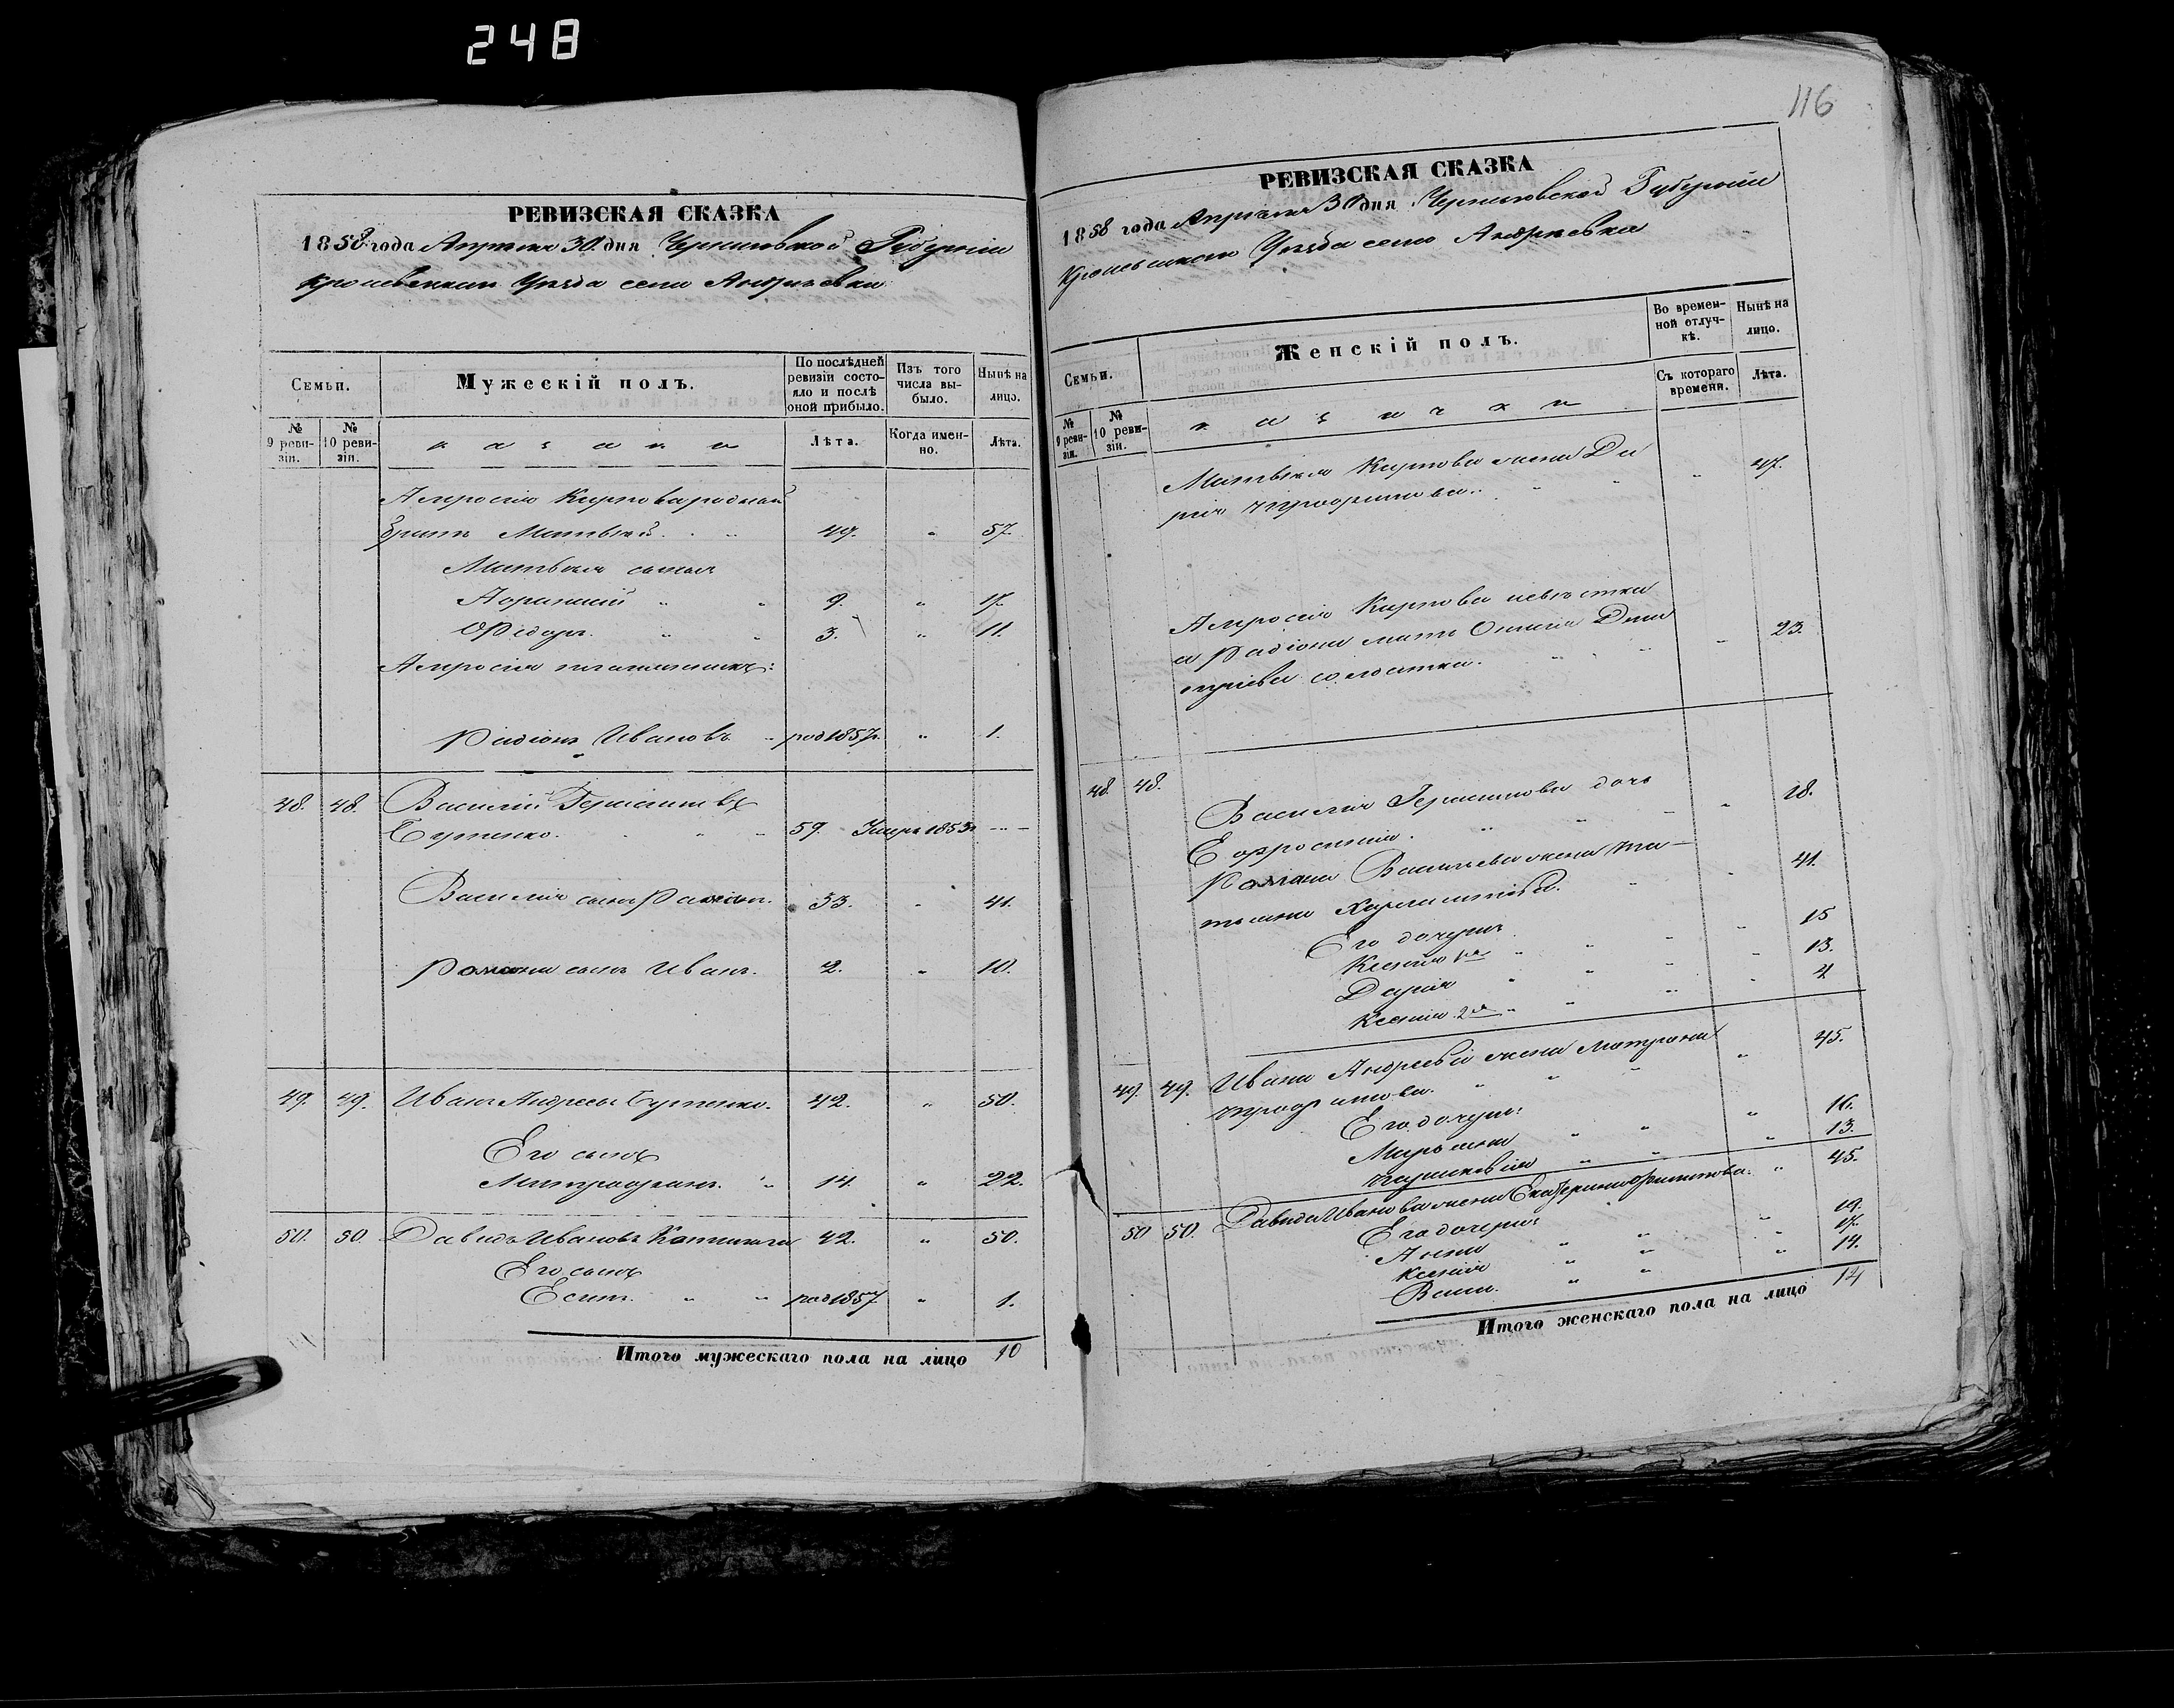 248
РЕВИЗСКАЯ СКАЗКА
1858 года Апреля 30 дня Черниговской Губерніи
Кролевецкаго Уезда села Андреевки
Семьи.
Мужескій полъ.
По послѣдней ревизіи состояло и послѣ оной прибыло.
Изъ того числа выбыло.
Нынѣ на лицо.
№ 9 ревизіи.
№ 10 ревизіи.
казаки
Лѣта.
Когда именно.
Лѣта.
Амросія Карпова родный
братъ Матвѣй. 49. " 57.
Матвѣя сыновья
9. " 17.
Федоръ. 3. " 11.
Амросія племянникъ:
Радіонъ Ивановъ род 1857 г. " 1.
48. 48. Василій Герасимовъ
59. Умеръ 1853 г. - -
Василія сынъ Романъ. 33. " 41.
Романа сынъ Иванъ. 2. " 10.
49. 49. Иванъ Андреевъ 42. " 50.
Его сынъ
Митрофанъ. 14. " 22.
50. 50. Давидъ Ивановъ 42. " 50.
Его сынъ
род 1857 " 1.
Итого мужескаго пола на лицо 10
116
РЕВИЗСКАЯ СКАЗКА
1858 года Апреля 30 дня Черниговской Губерніи
Кролевецкаго Уезда села Андреевки
Семьи.
Женскій полъ.
Во временной отлучкѣ.
Нынѣ на лицо.
№ 9 ревизіи.
№ 10 ревизіи.
казачки
Съ котораго времени.
Лѣта.
Матвѣя Карпова жена Да
рія Трофимова. " 47.
Амросія Карпова невѣстка
а Радіона мать
солдатка. " 23.
48. 48. Василія Герасимова дочь
Ефросинія. " 18.
Романа Васильева жена Та-
тьяна " 41.
Его дочери
Ксенія 1я " 15
Дарія " 13.
Ксенія 2я " 4
49. 49. Ивана Андреева жена Матрона
Трофимова. " 45.
Его дочери:
Марьяна " 16.
Парасковія " 13.
50 50. Давида Иванова жена Екатерина Филипова. " 45.
Его дочери:
Анна " 19.
Ксенія " 17.
" 14.
Итого женскаго пола на лицо 14